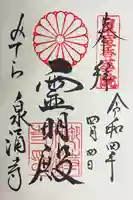 奉拝
令和四年
四月四日
霊明殿
みてら
泉涌寺